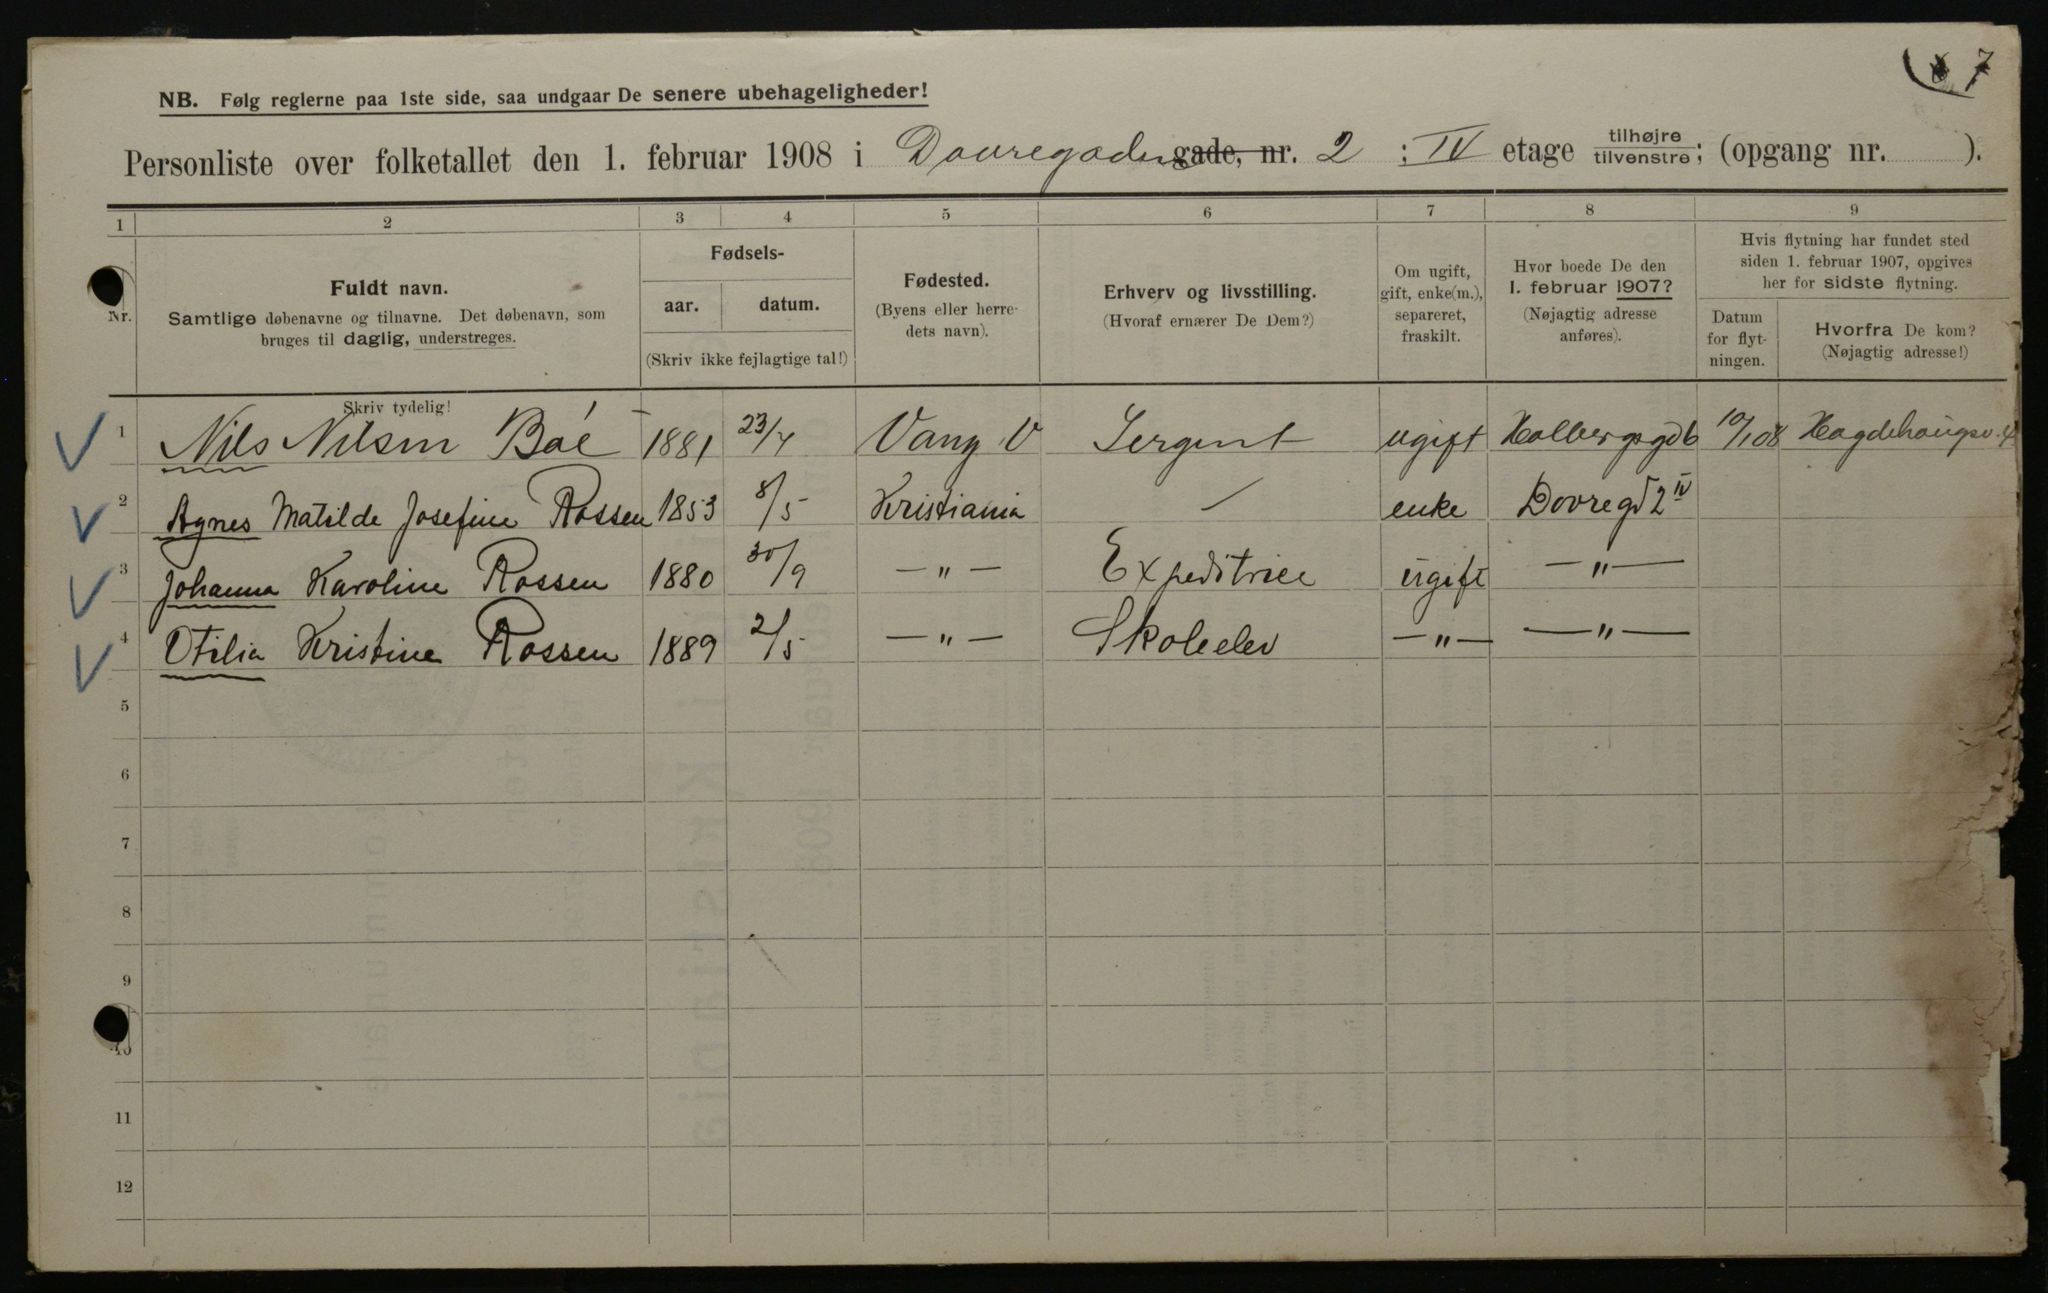 7
NB. Følg reglerne paa 1ste side, saa undgaar De senere ubehageligheder!
Personliste over folketallet den 1. februar 1908 i Dovregaden gade, nr. 2 : IV etage tilhøjre tilvenstre; (opgang nr. ).
1 2 3 4 5 6 7 8 9
Nr.
Fuldt navn.
Samtlige døbenavne og tilnavne. Det døbenavn, som
bruges til daglig, understreges.
Skriv tydelig!
Fødsels-
aar. datum.
(Skriv ikke fejlagtige tal!)
Fødested.
(Byens eller herre-
dets navn).
Erhverv og livsstilling.
(Hvoraf ernærer De Dem?)
Om ugift,
gift, enke(m.),
separeret,
fraskilt.
Hvor boede De den
1. februar 1907?
(Nøjagtig adresse
anføres).
Hvis flytning har fundet sted
siden 1. februar 1907, opgives
her for sidste flytning.
Datum
for flyt-
ningen.
Hvorfra De kom?
(Nøjagtig adresse!)
1 Nils Nilsen Boé 1881 23/4 Vang V Sergent ugift Holbergsgd 6 10/1 08 Hagdehaugsv. 4
2 Agnes Matilde Josefine Rossen 1853 8/5 Kristiania — enke Dovregd 2 IV
3 Johanna Karoline Rossen 1880 30/9 — " — Expeditrice ugift — " —
4 Otilia Kristine Rossen 1889 2/5 — " — Skoleelev — " — — " —
5
6
7
8
9
10
11
12